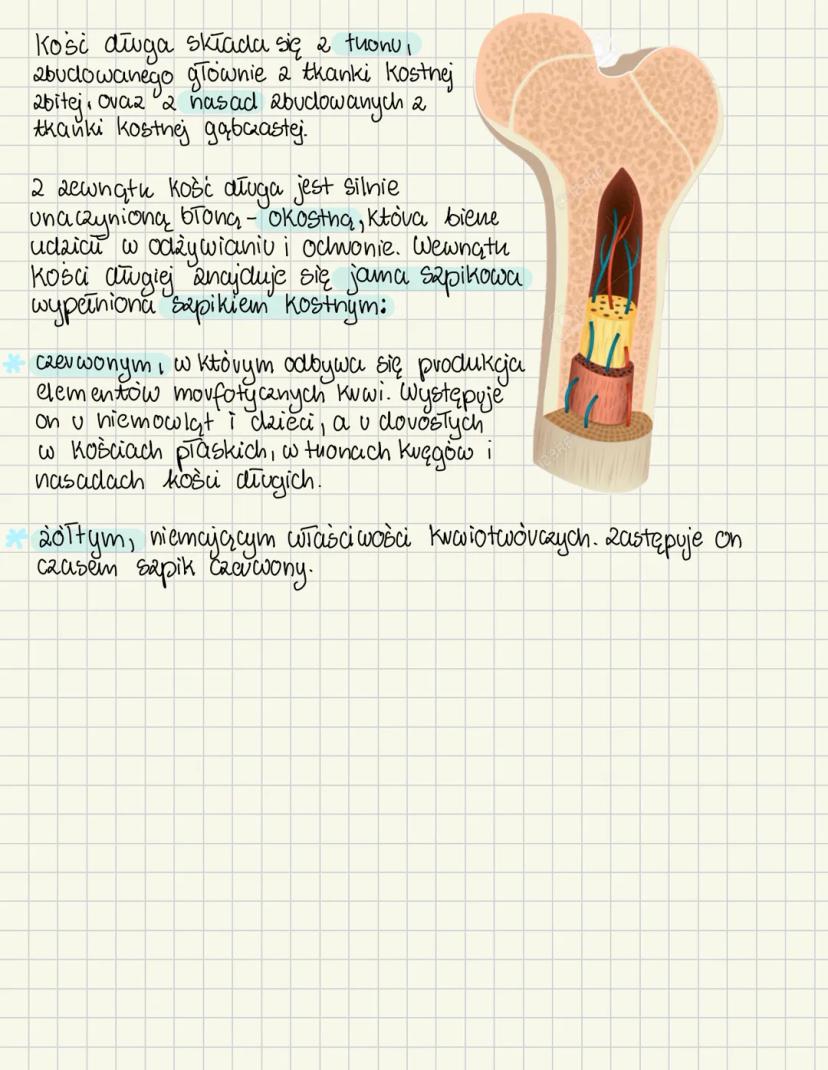 Kość długa składa się z trzonu,
zbudowanego głównie z tkanki kostnej
zbitej, oraz z nasad zbudowanych z
tkanki kostnej gąbczastej.
Z zewnątrz kość długa jest silnie
unaczynioną błoną - okostną, która bierze
udział w odżywianiu i ochronie. Wewnątrz
kości długiej znajduje się jama szpikowa
wypełniona szpikiem kostnym:
* czerwonym, w którym odbywa się produkcja
elementów morfotycznych krwi. Występuje
on u niemowląt i dzieci, a u dorosłych
w kościach płaskich, w trzonach kręgów i
nasadach kości długich.
* żółtym, niemającym właściwości krwiotwórczych. Zastępuje on
czasem szpik czerwony.